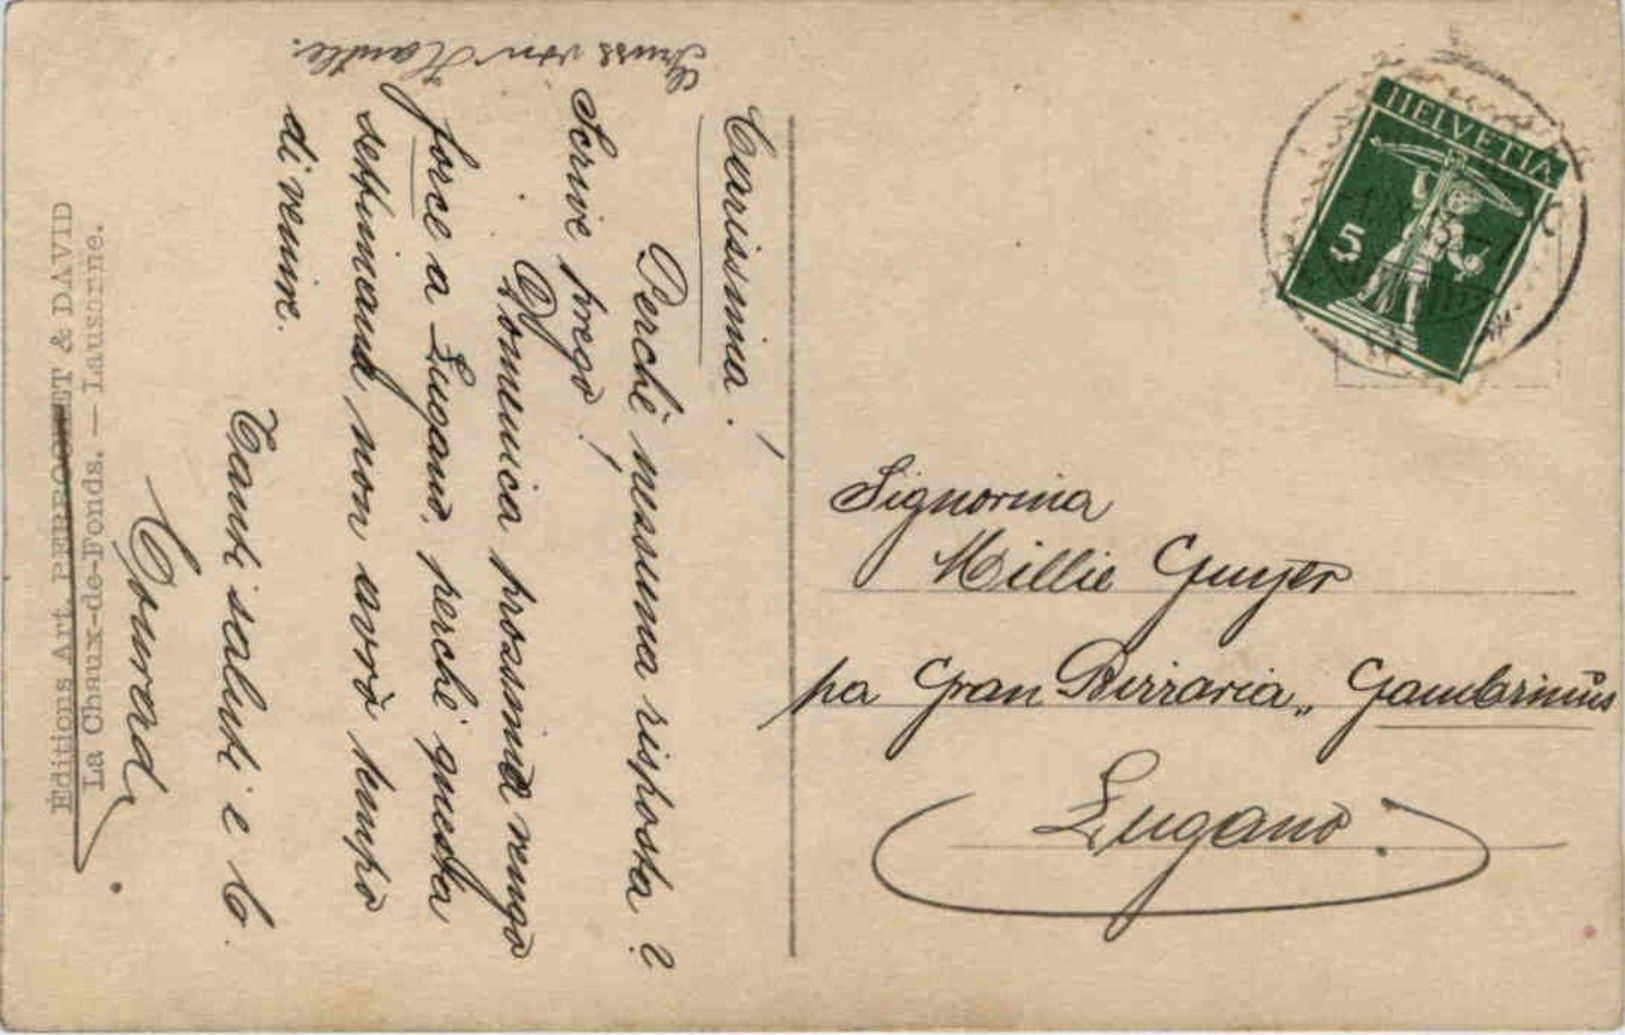 Carissima!
Perchè nessuna risposta?
Scrive prego!
Domenica prossima vengo
force a Lugano, perchè questa
settimana non avrò tempo
di venire.
Tanti saluti e b.
Conrad
Gruss von
Editions Art. PERROCHET & DAVID
La Chaux-de-Fonds. — Lausanne.
HELVETIA
5
Signorina
Millie Gujer
pa Gran Birraria „Gambrinus
Lugano.